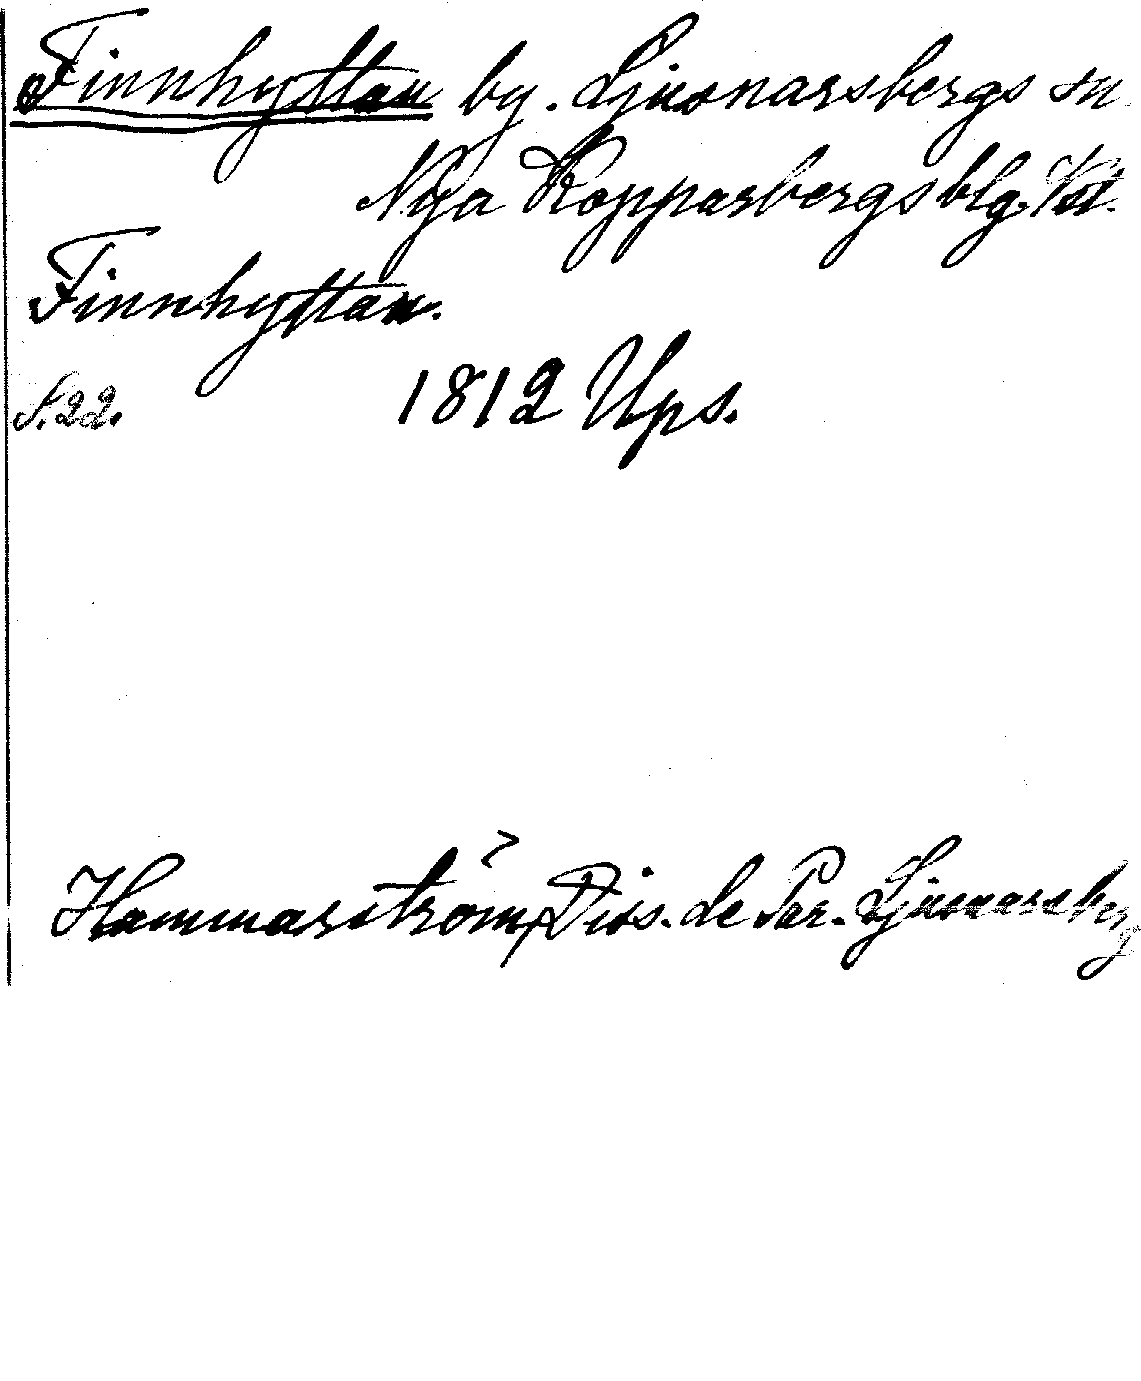 Finnhyttan by. Ljusnarsbergs sn.
Nya Kopparbergs blg. Vst.
Finnhyttan.
S. 22. 1812 Ups.
Hammarström, Diss. de Par. Ljusnarsberg